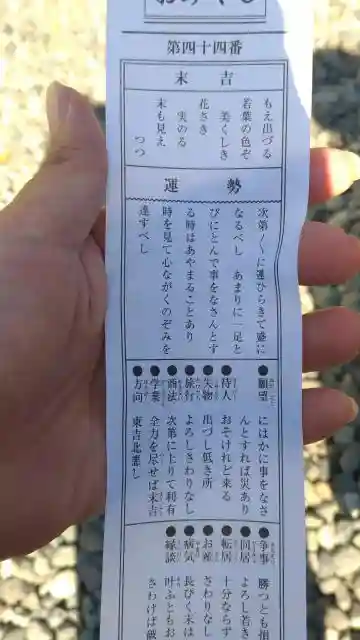 おみくじ
第四十四番
末吉
もえ出づる
若葉の色ぞ
美くしき
花さき
実のる
末も見え
つつ
運勢
次第〳〵に運ひらきて盛に
なるべし あまりに一足と
びにとんで事をなさんとす
る時はあやまることあり
時を見て心ながくのぞみを
達すべし
●願望 にはかに事をなさ
んとすれば災あり
●待人 おそけれど来る
●失物 出づし低き所
●旅行 よろしさわりなし
●商法 次第に上りて利有
●学業 全力を尽せば末吉
●方向 東吉北悪し
●争事 勝つとも
●同居 よろし若き
●転居 十分ならず
●お産 さわりなし
●病気 長びく末は
●縁談 叶ふともお
さわげば破